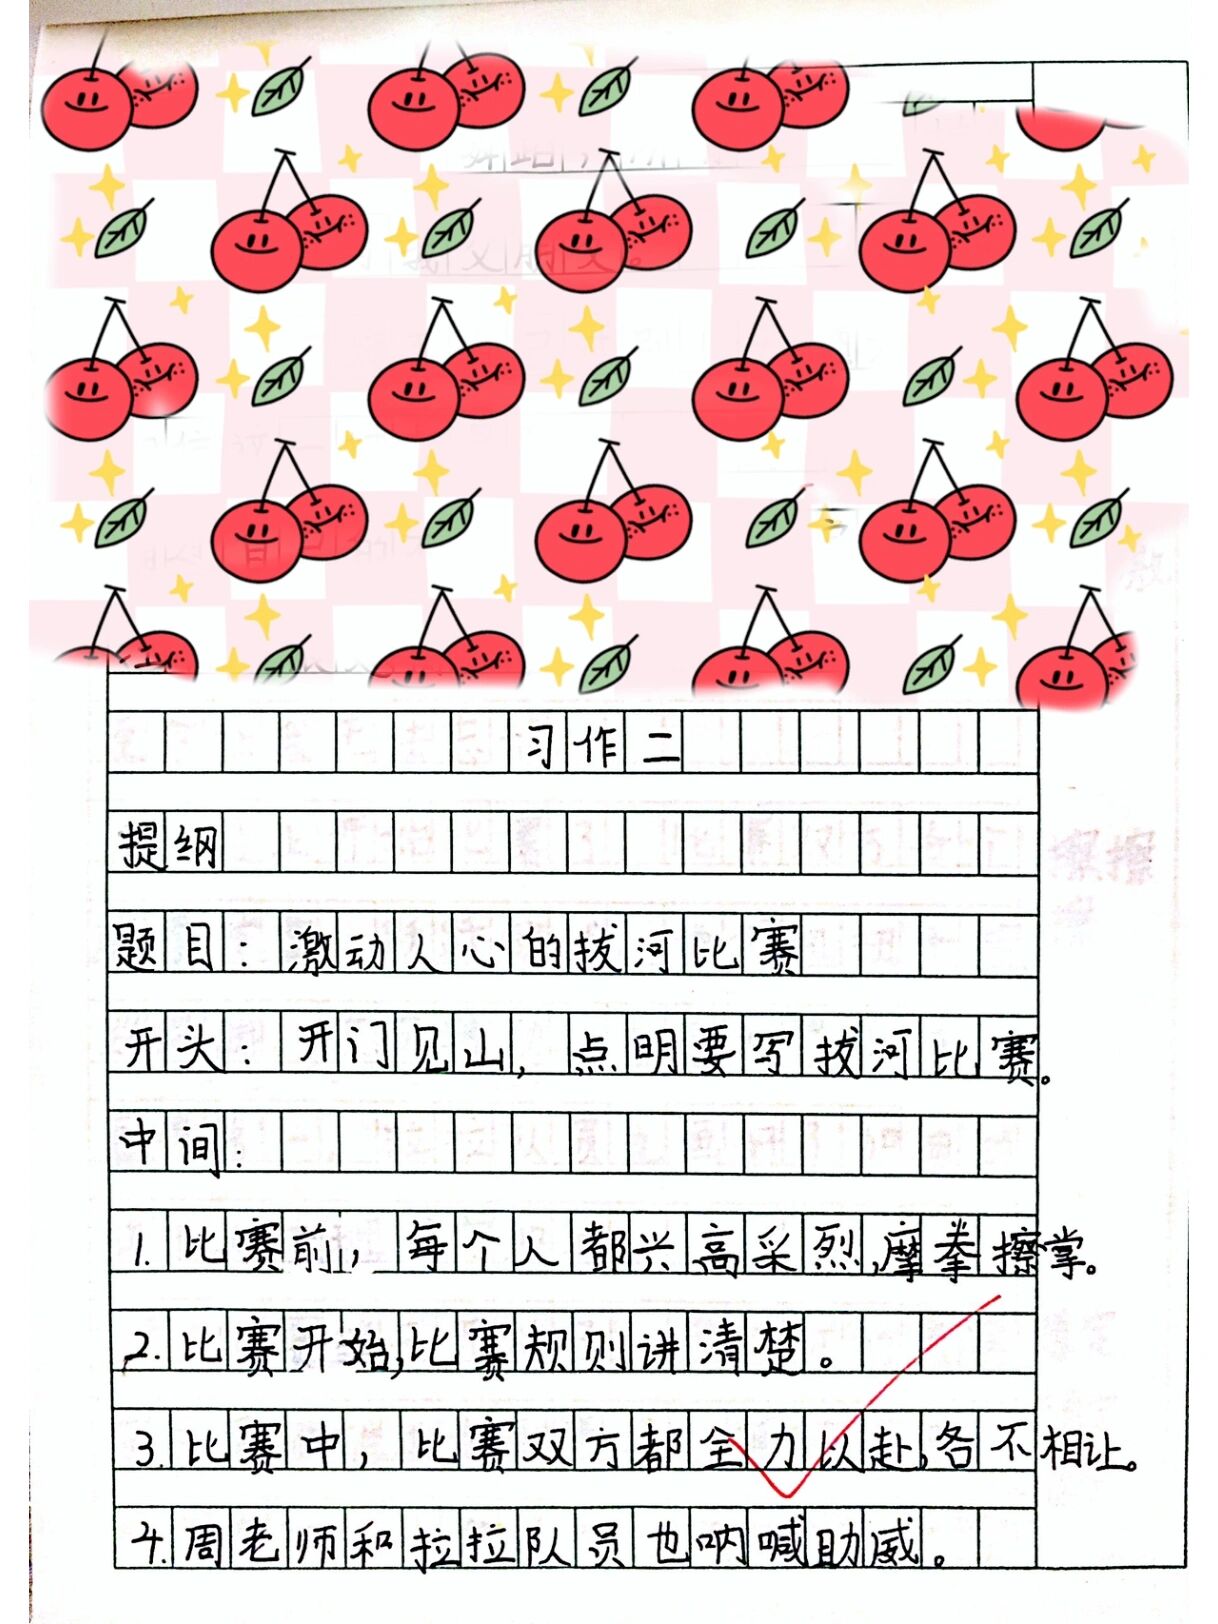 习作二
提纲
题目：激动人心的拔河比赛
开头：开门见山，点明要写拔河比赛。
中间：
1.比赛前，每个人都兴高采烈，摩拳擦掌。
2.比赛开始，比赛规则讲清楚。
3.比赛中，比赛双方都全力以赴，各不相让。
4.周老师和拉拉队员也呐喊助威。